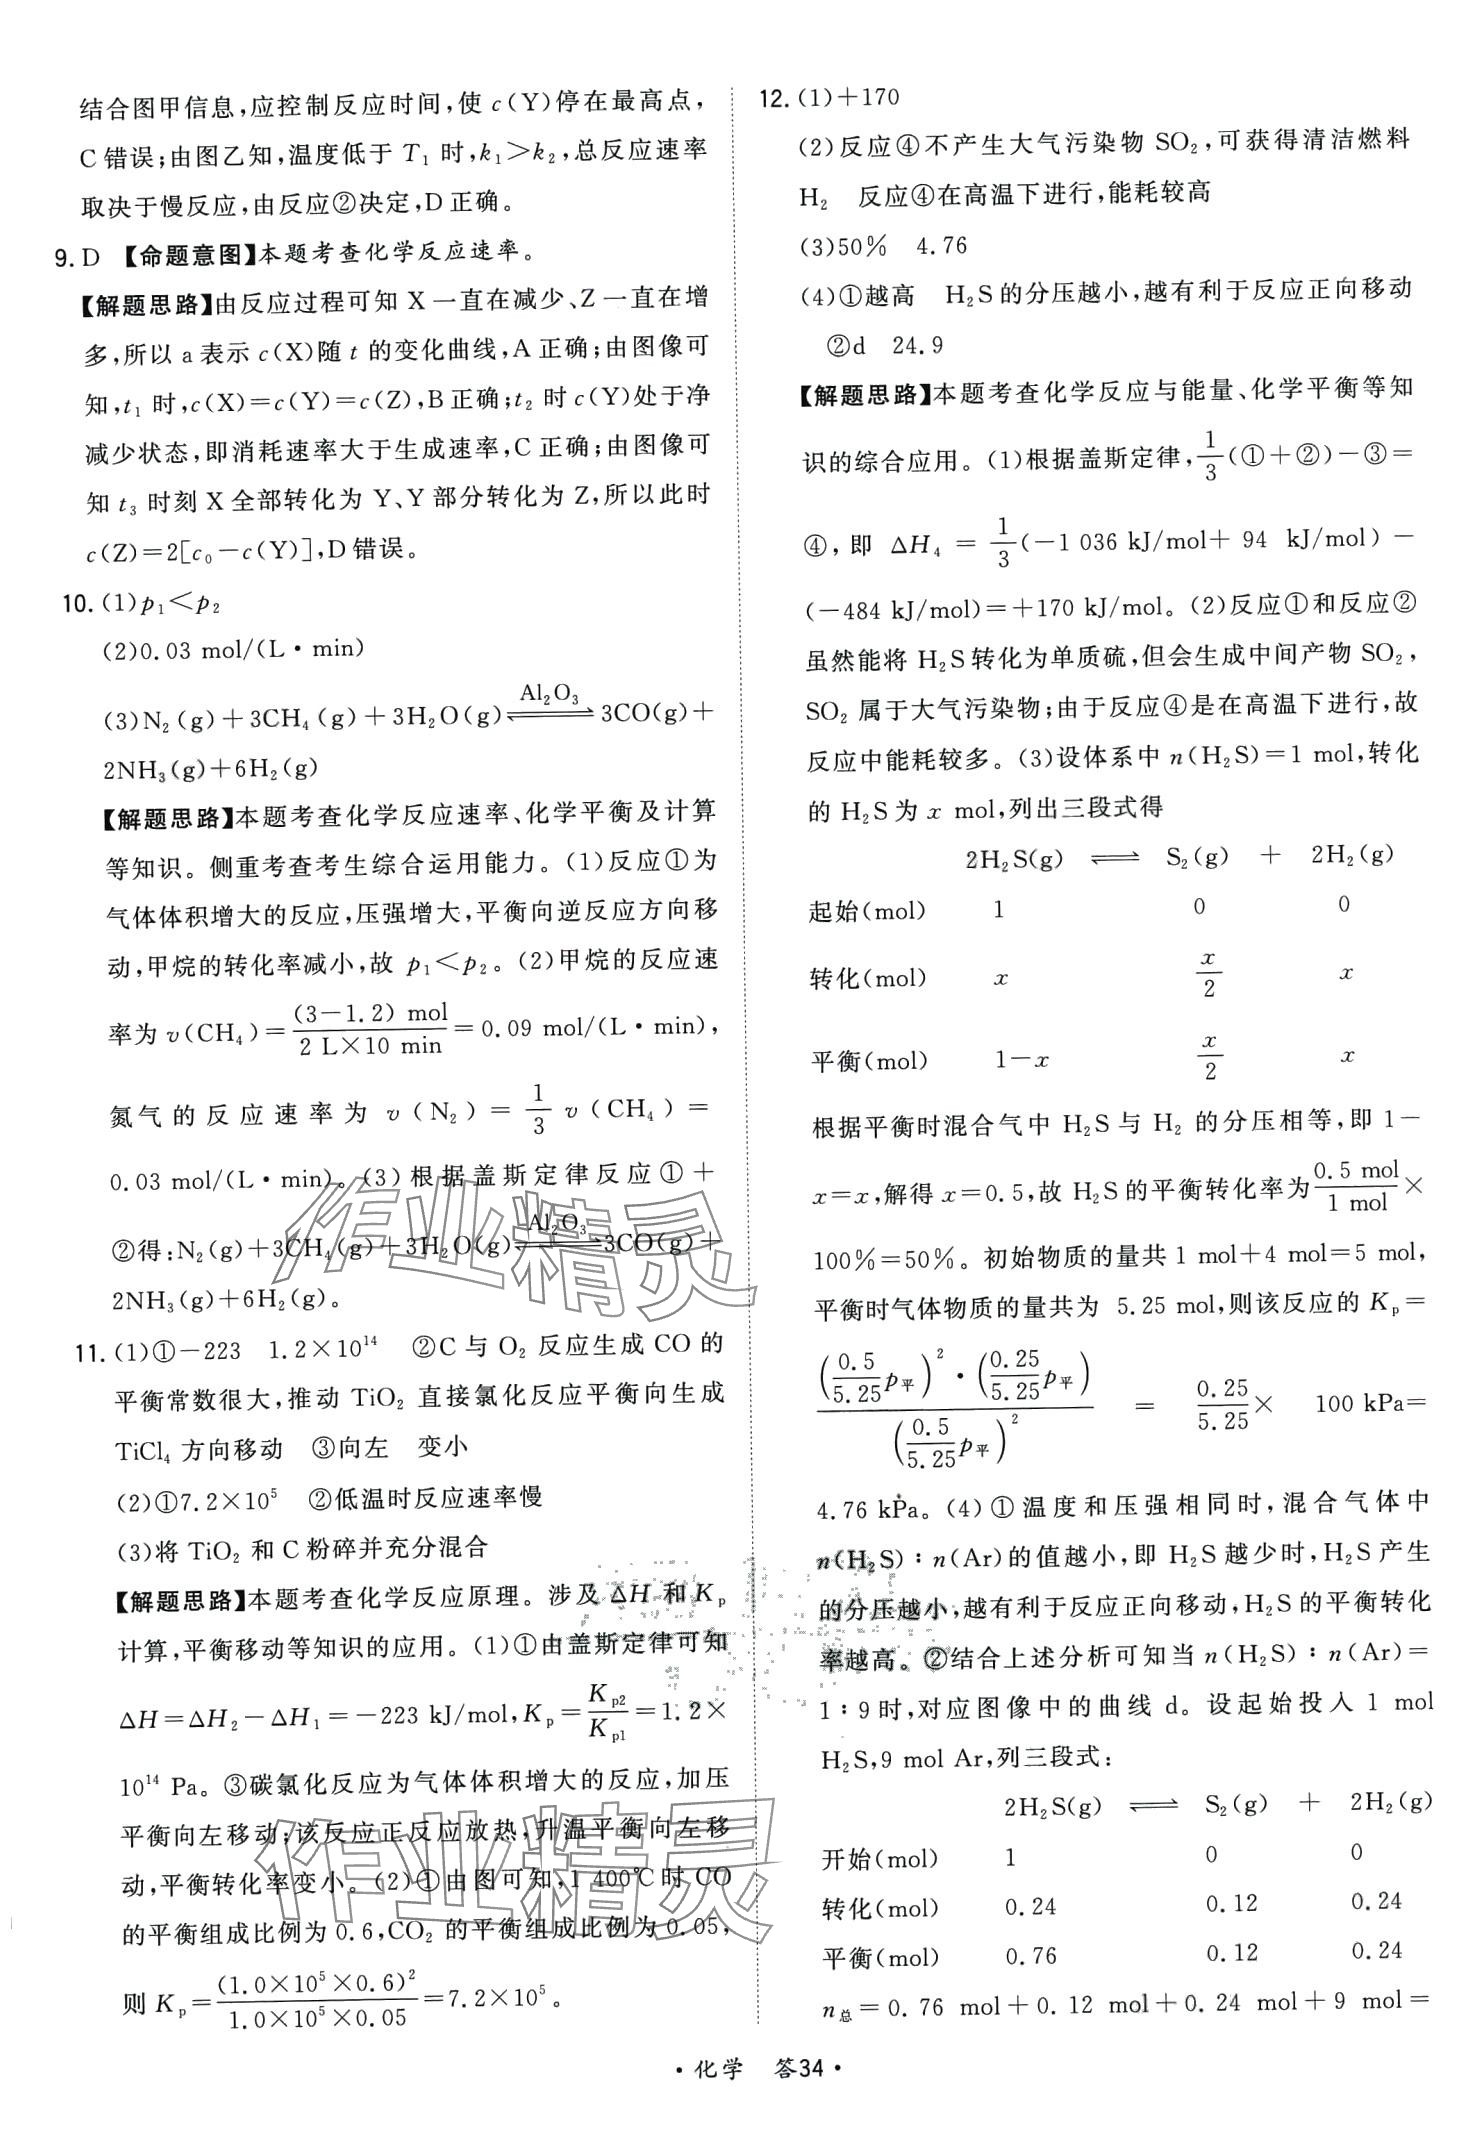 结合图甲信息,应控制反应时间,使 c(Y)停在最高点,
C 错误;由图乙知,温度低于 T₁ 时,k₁>k₂,总反应速率
取决于慢反应,由反应②决定,D 正确。
9. D 【命题意图】本题考查化学反应速率。
【解题思路】由反应过程可知 X 一直在减少、Z 一直在增
多,所以 a 表示 c(X)随 t 的变化曲线,A 正确;由图像可
知,t₁ 时,c(X)=c(Y)=c(Z),B 正确;t₂ 时 c(Y)处于净
减少状态,即消耗速率大于生成速率,C 正确;由图像可
知 t₃ 时刻 X 全部转化为 Y、Y 部分转化为 Z,所以此时
c(Z)=2[c₀-c(Y)],D 错误。
10. (1)p₁<p₂
(2)0.03 mol/(L·min)
(3)N₂(g)+3CH₄(g)+3H₂O(g) ⇌(Al₂O₃) 3CO(g)+
2NH₃(g)+6H₂(g)
【解题思路】本题考查化学反应速率、化学平衡及计算
等知识。侧重考查考生综合运用能力。(1)反应①为
气体体积增大的反应,压强增大,平衡向逆反应方向移
动,甲烷的转化率减小,故 p₁<p₂。(2)甲烷的反应速
率为 v(CH₄)=(3-1.2) mol/(2 L×10 min)=0.09 mol/(L·min),
氮气的反应速率为 v(N₂)=1/3 v(CH₄)=
0.03 mol/(L·min)。(3)根据盖斯定律反应①+
②得:N₂(g)+3CH₄(g)+3H₂O(g) ⇌(Al₂O₃) 3CO(g)+
2NH₃(g)+6H₂(g)。
11. (1)①-223 1.2×10¹⁴ ②C 与 O₂ 反应生成 CO 的
平衡常数很大,推动 TiO₂ 直接氯化反应平衡向生成
TiCl₄ 方向移动 ③向左 变小
(2)①7.2×10⁵ ②低温时反应速率慢
(3)将 TiO₂ 和 C 粉碎并充分混合
【解题思路】本题考查化学反应原理。涉及 ΔH 和 Kp
计算,平衡移动等知识的应用。(1)①由盖斯定律可知
ΔH=ΔH₂-ΔH₁=-223 kJ/mol,Kp=Kp2/Kp1=1.2×
10¹⁴ Pa。③碳氯化反应为气体体积增大的反应,加压
平衡向左移动;该反应正反应放热,升温平衡向左移
动,平衡转化率变小。(2)①由图可知,1 400℃时 CO
的平衡组成比例为 0.6,CO₂ 的平衡组成比例为 0.05,
则 Kp=(1.0×10⁵×0.6)²/(1.0×10⁵×0.05)=7.2×10⁵。
12. (1)+170
(2)反应④不产生大气污染物 SO₂,可获得清洁燃料
H₂ 反应④在高温下进行,能耗较高
(3)50% 4.76
(4)①越高 H₂S的分压越小,越有利于反应正向移动
②d 24.9
【解题思路】本题考查化学反应与能量、化学平衡等知
识的综合应用。(1)根据盖斯定律,1/3(①+②)-③=
④,即 ΔH₄=1/3(-1 036 kJ/mol+94 kJ/mol)-
(-484 kJ/mol)=+170 kJ/mol。(2)反应①和反应②
虽然能将 H₂S转化为单质硫,但会生成中间产物 SO₂,
SO₂ 属于大气污染物;由于反应④是在高温下进行,故
反应中能耗较多。(3)设体系中 n(H₂S)=1 mol,转化
的 H₂S为 x mol,列出三段式得
2H₂S(g) ⇌ S₂(g) + 2H₂(g)
起始(mol) 1 0 0
转化(mol) x x/2 x
平衡(mol) 1-x x/2 x
根据平衡时混合气中 H₂S与 H₂ 的分压相等,即 1-
x=x,解得 x=0.5,故 H₂S的平衡转化率为0.5 mol/1 mol×
100%=50%。初始物质的量共 1 mol+4 mol=5 mol,
平衡时气体物质的量共为 5.25 mol,则该反应的 Kp=
(0.5/5.25 p平)²·(0.25/5.25 p平)/(0.5/5.25 p平)² = 0.25/5.25× 100 kPa=
4.76 kPa。(4)①温度和压强相同时,混合气体中
n(H₂S)∶n(Ar)的值越小,即 H₂S越少时,H₂S产生
的分压越小,越有利于反应正向移动,H₂S的平衡转化
率越高。②结合上述分析可知当 n(H₂S)∶n(Ar)=
1∶9时,对应图像中的曲线 d。设起始投入 1 mol
H₂S,9 mol Ar,列三段式:
2H₂S(g) ⇌ S₂(g) + 2H₂(g)
开始(mol) 1 0 0
转化(mol) 0.24 0.12 0.24
平衡(mol) 0.76 0.12 0.24
n总=0.76 mol+0.12 mol+0.24 mol+9 mol=
作业精灵
作业精灵
·化学 答34·